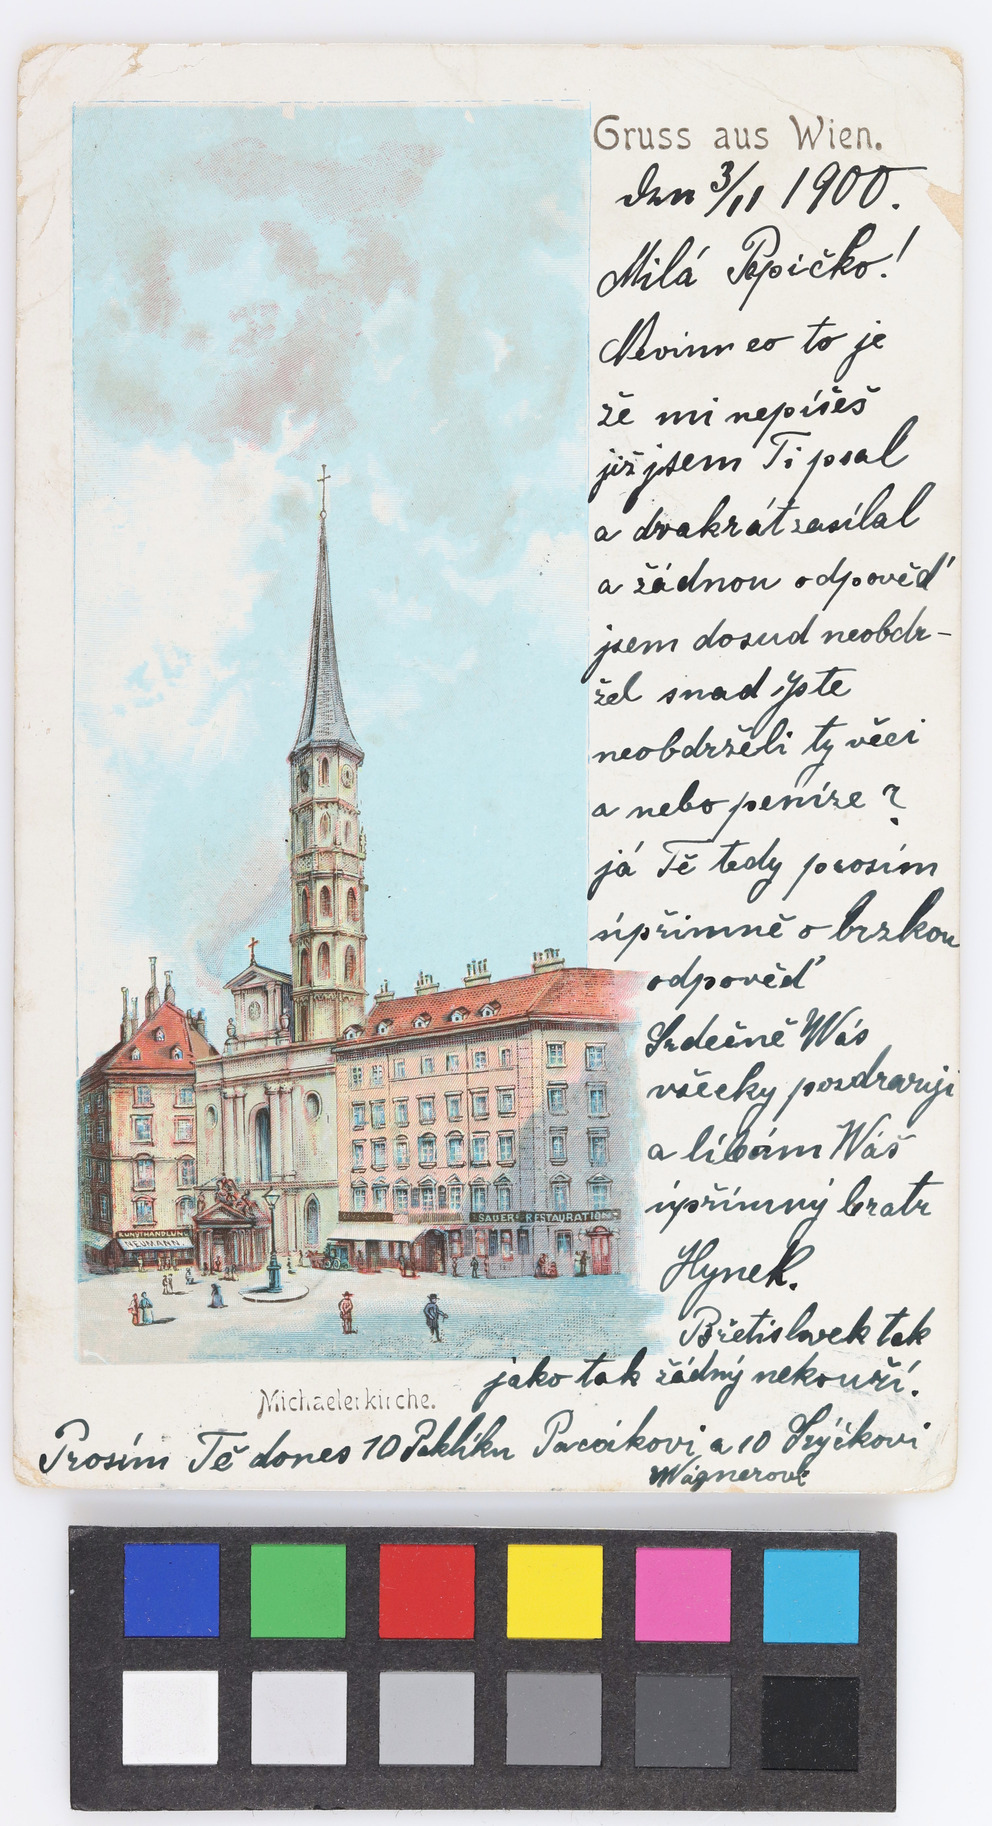 Gruss aus Wien.
den 3/11 1900.
Milá Pepičko!
Nevim co to je
že mi nepíšeš
již jsem Ti psal
a dvakrát zasílal
a žádnou odpověď
jsem dosud neobdr-
žel snad jste
neobdrželi ty věci
a nebo peníze?
já Tě tedy prosím
úpřimně o brzkou
odpověď
Srdečně Wás
všecky pozdravuji
a líbám Wáš
úpřímný bratr
Hynek.
Břetislavek tak
jako tak žádný nekouří.
Prosím Tě dones 10 Paklíku Pacákovi a 10 Frýčkovi
Wágnerovi
KUNSTHANDLUNG
NEUMANN.
SAUER-RESTAURATION
Michaelerkirche.